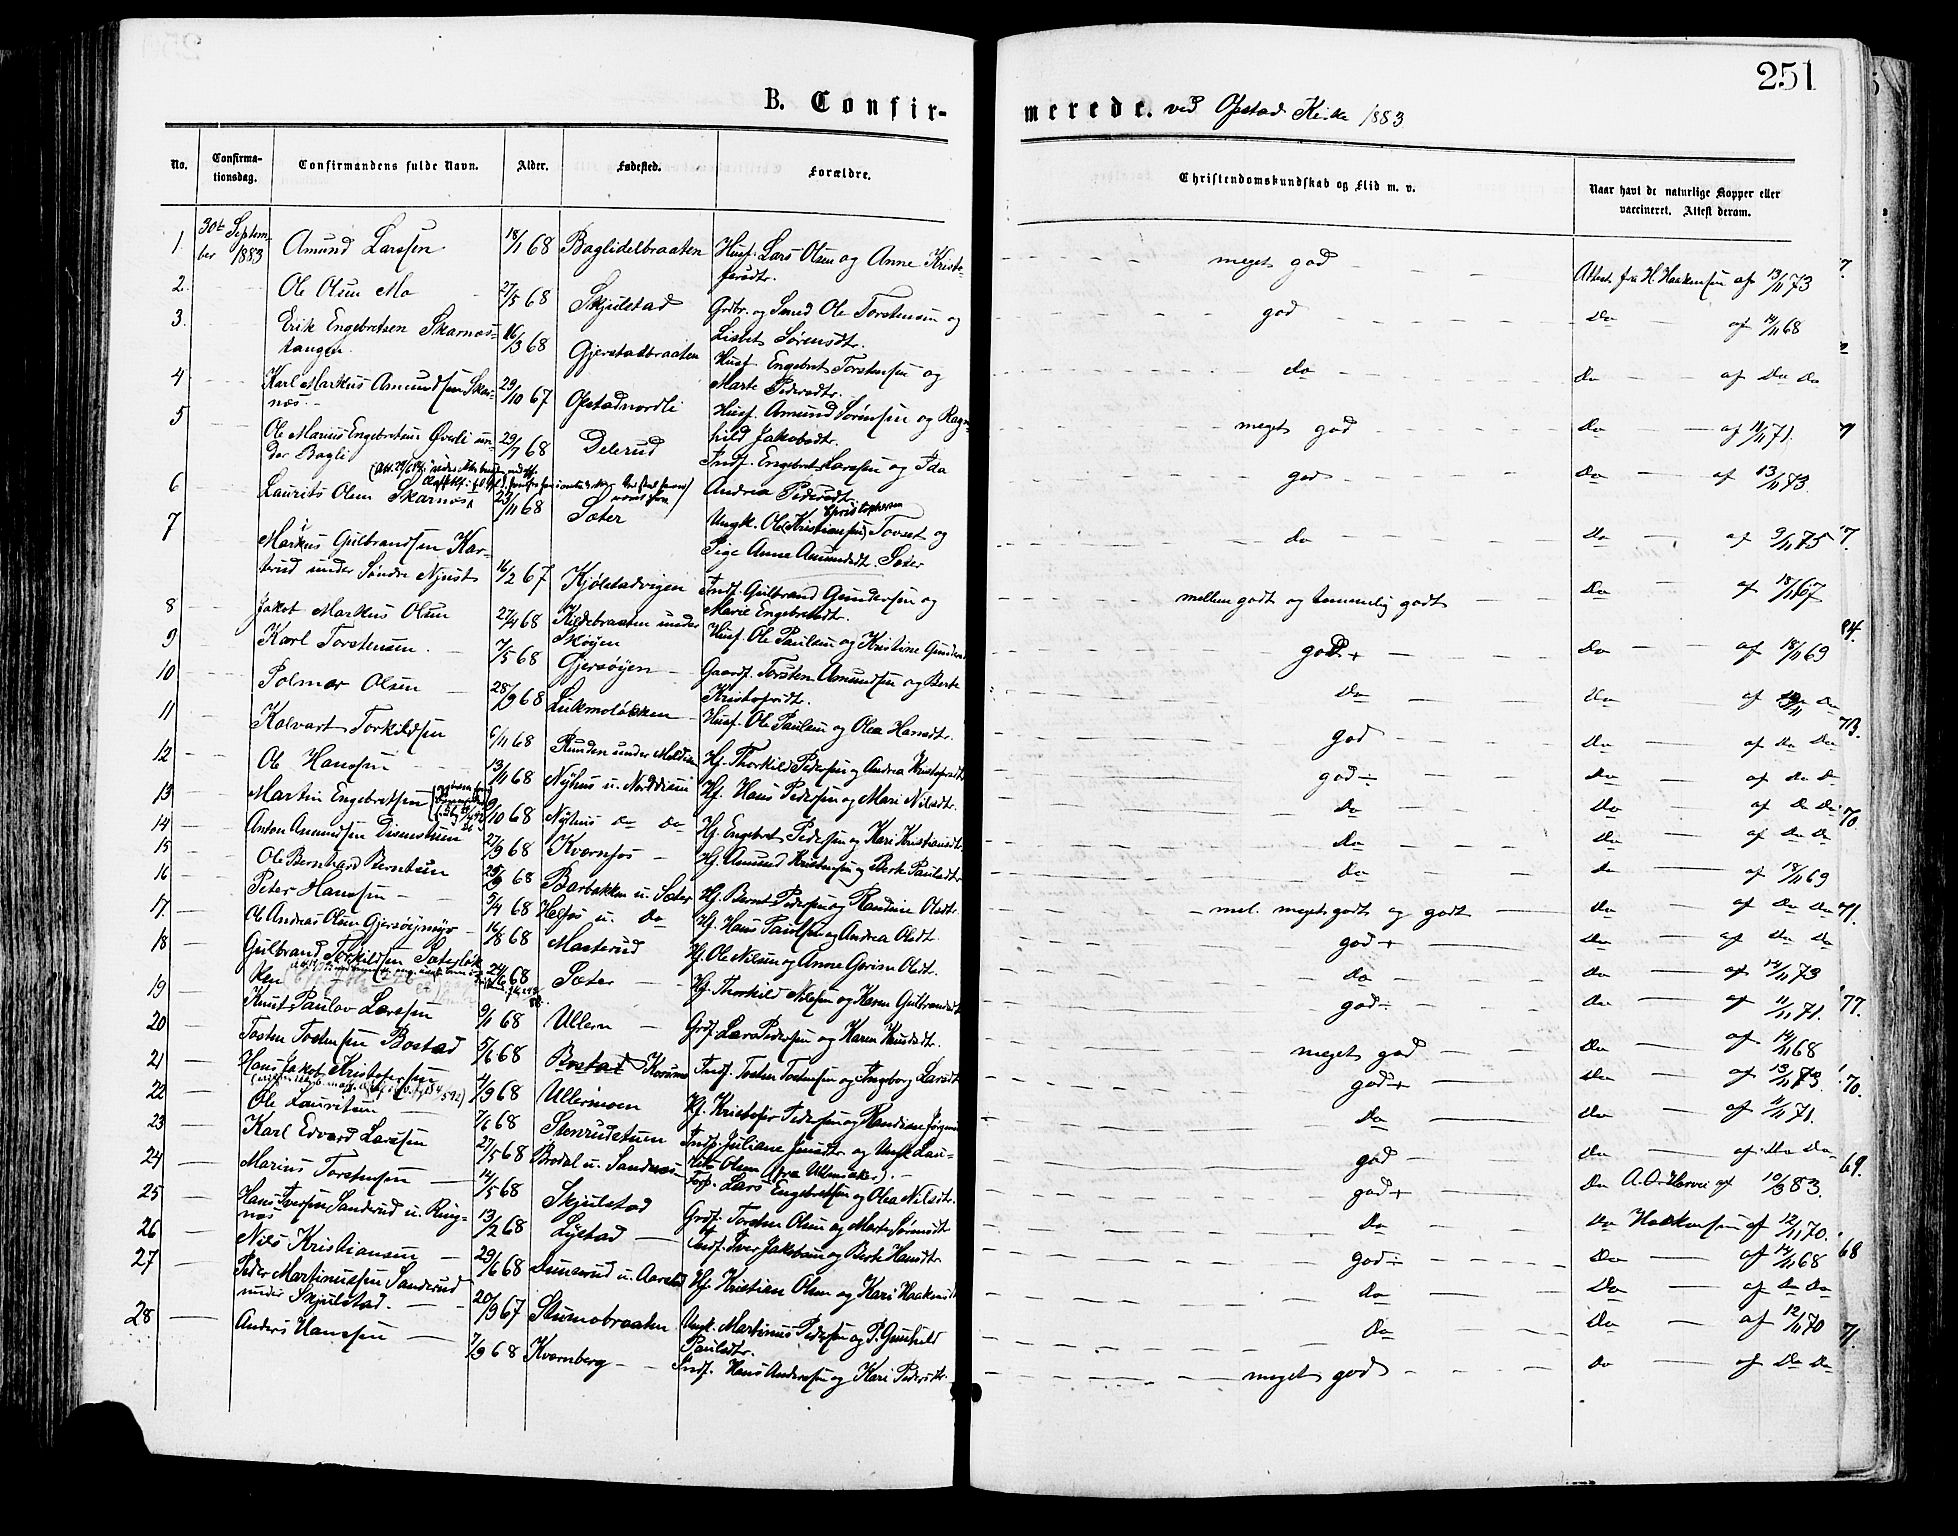 251
B. Confirmerede. ved Opstad Kirke 1883
No.
Confirma-
tionsdag.
Confirmandens fulde Navn.
Alder.
Fødested.
Forældre.
Christendomskundskab og Flid m. v.
Naar havt de naturlige Kopper eller
vaccineret. Attest derom.
30te Septem-
ber 1883
1. Amund Larssen 18/1 68 Baglidelbraaten Husf. Lars Olsen og Anne Kristo-
fersdtr. meget god Attest fra H. Haakensen af 13/11 73
2. Ole Olsen Mo 27/5 68 Skjulstad Grdbr. og Smed Ole Torstensen og
Lisbet Sørensdtr. god Do af 14/11 68
3. Erik Engebretsen Skarnos-
tangen. 16/3 68 Gjerstadbraaten Husf. Engebret Torstensen og
Marte Pedersdtr. do Do af Do Do
4 Karl Markus Amundsen Skar-
nos. 29/10 67 Opstadnordli Husf. Amund Sørensen og Ragn-
hild Jakobsdtr. meget god Do af 11/11 71.
5 Ole Marius Engebretsen Øverli un-
der Bagli 29/7 68 Delerud Indf. Engebret Larssen og Ida
Andrea Pedersdtr. god Do af 13/11 73.
6 Laurits Olsen Skarnos 23/11 68 Sæter Ungk. Ole (Kristiansen) Christophersen Tovset og
Pige Anne Amundsdt. Sæter do Do af 9/11 75
7 Markus Gulbrandsen Kar-
terud under Søndre Njust 16/2 67 Kjølstadvigen Indf. Gulbrand Gundersen og
Marie Engebretsdtr. mellem godt og temmelig godt Do af 18/11 67
8 Jakob Markus Olsen 27/4 68 Kildebraaten under
Skøyen Husf. Ole Paulsen og Kristine Gundersd god + Do af 18/11 69
9 Karl Torstensen. 7/5 68 Gjersøyen Gaardf. Torsten Amundsen og Berte
Kristofersdtr. Do Do af Do
10 Polmar Olsen 28/9 68 Lukmoløkken Husf. Ole Paulsen og Olea Hansdtr. god Do af Do Do
11 Kolvart Torkildsen 6/11 68 Runden under Moldien Hf. Thorkild Pedersen og Andrea Kristofersdt god ÷ Do af Do Do
12 Ole Hanssen 13/11 68 Nyhus u. Norddiseni Hf. Hans Pedersen og Mari Nilsdtr. Do Do af Do Do
13 Martin Engebretsen 9/10 68 Nyhus Do Do Hf. Engebret Pedersen og Kari Kristiansdtr Do Do af Do Do
14 Anton Amundsen Disenstuen 27/9 68 Kværnfos Hf. Amund Kristensen og Berte Paulsdtr Do Do 18/11 69
15 Ole Bernhard Berntsen 25/9 68 Barbakken u. Sæter Hf. Bernt Pedersen og Randine Olsdtr. mel. meget godt og godt Do af Do Do
16 Peter Hanssen 5/4 68 Helfos u. Do Hf. Hans Paulsen og Andrea Olsdt. god + Do af Do Do
17. Ole Andreas Olsen Gjersøyenmyr 16/8 68 Masterud Hf. Ole Nilsen og Anne Gorine Olsdt. Do Do 14/11 73
18 Gulbrand Torkildsen Sæterløk-
ken 24/6 68 Sæter Hf. Thorkild Nilsen og Karen Gulbrandsdt god ÷ Do af 11/11 71.
19 Knut Paulov Larssen 9/11 68 Ullern Grdf. Lars Pedersen og Karen Knudsdt. meget god Do af 14/11 68
20 Tosten Tostensen Bostad 5/6 68 Bostad Korsmo Indf. Tosten Tostensen og Ingeborg Larsdt god + Do af 13/11 73.
21 Hans Jakob Kristofersen 4/9 68 Ullermoen Hf. Kristofer Pedersen og Randine Jørgensd Do Do af 11/11 71.
22 Ole Lauritsen 7/6 68 Stenrudstuen Indf. Juliane Jensdtr og Ungk Lau-
rits Olsen (fra Ullensaker). god Do af Do Do
23 Karl Edvard Larssen 27/5 68 Brodal u. Sandnes Forp. Lars Engebretsen og Olea Nilsdtr. god + Do A. O. Horne af 10/9 83.
24 Marius Torstensen 14/5 68 Skjulstad Grdf. Torsten Olsen og Marte Sørensdt Do Do Haakensen af 12/11 70.
25 Hans Iversen Sanderud u. Ring-
nos 13/2 68 Lystad Indf. Iver Jakobsen og Berte Hansdtr. god ÷ Do af 14/11 68
26 Nils Kristiansen 29/6 68 u. Aarstad Hf. Kristian Olsen og Kari Haakensdt Do Do af Do Do
27 Peder Martinussen Sanderud
under Skjulstad. 20/9 67 Stumobraaten Ungk. Martinus Pedersen og P. Gunhild
Paulsdtr. Do Do af 12/11 70
28 Anders Hanssen 7/9 68 Kværnberg Indf. Hans Anderssen og Kari Pedersdtr. meget god Do af Do Do